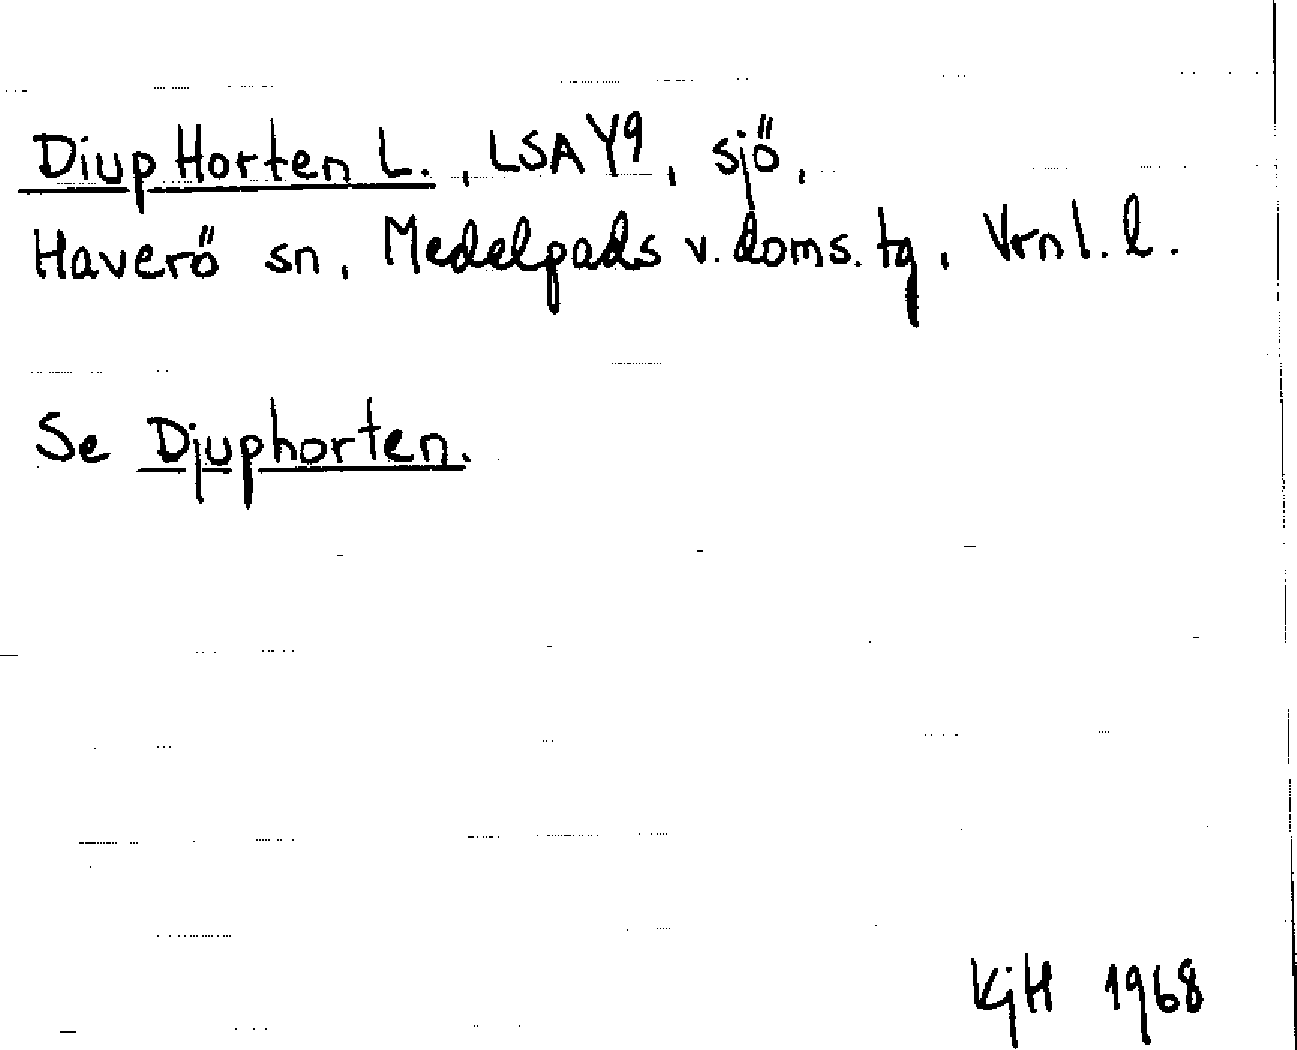 Diup Horten L., LSA Y9, sjö,
Haverö sn, Medelpads v. doms. tg, Vrnl. l.
Se Djuphorten.
KjH 1968